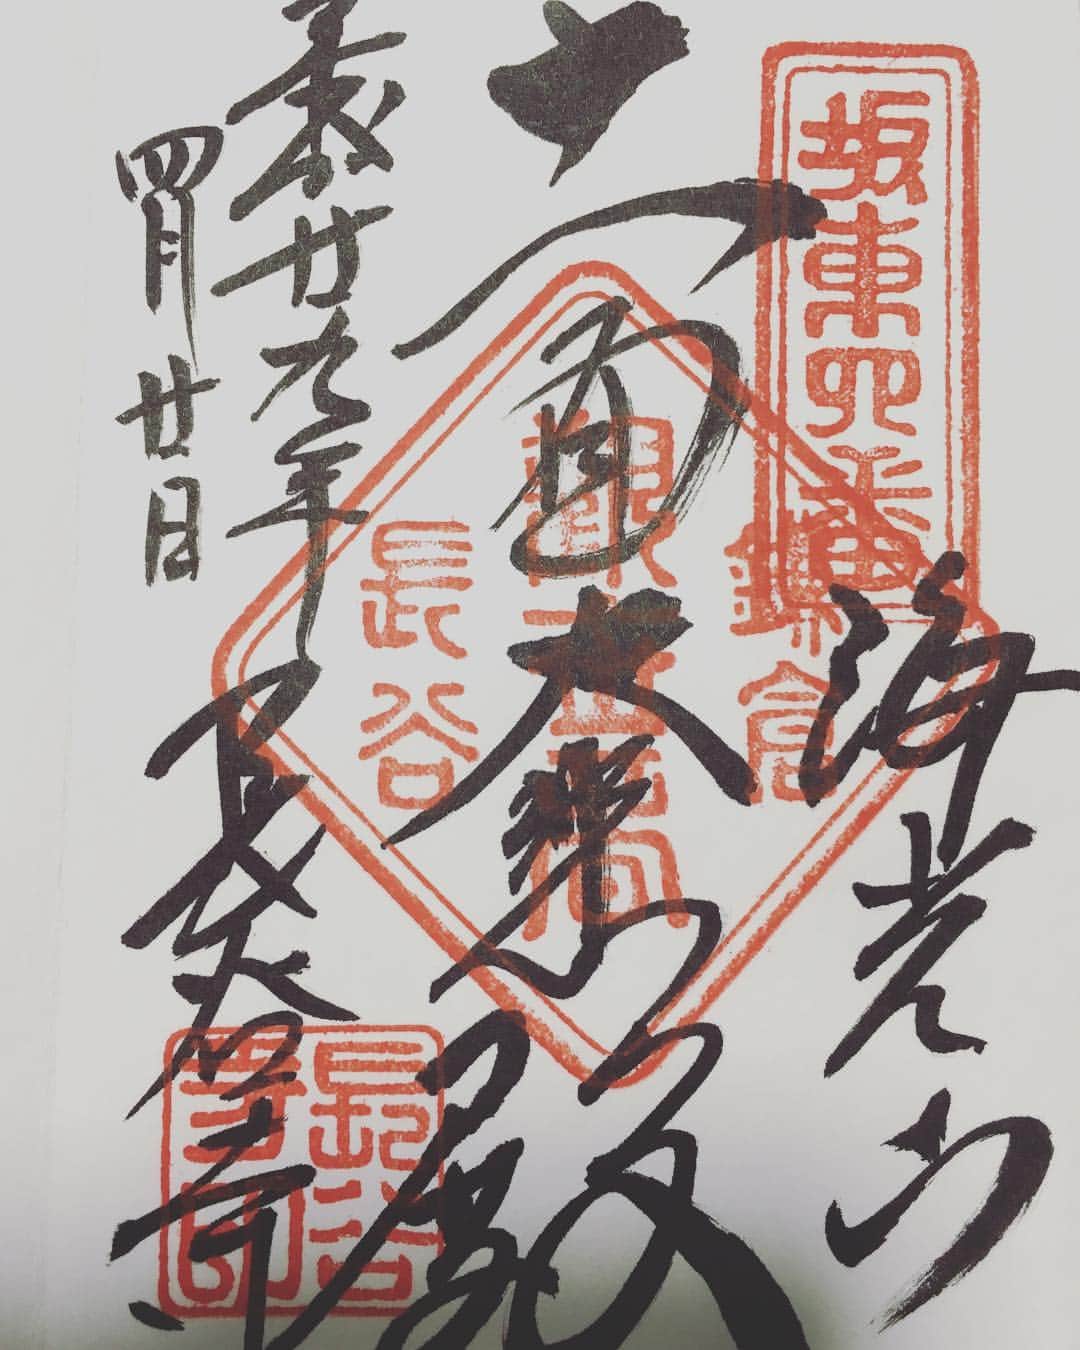 坂東四番
海光山
鎌倉
十一面大悲殿
長谷
平成廿九年
四月廿日
長谷寺
長谷
寺印